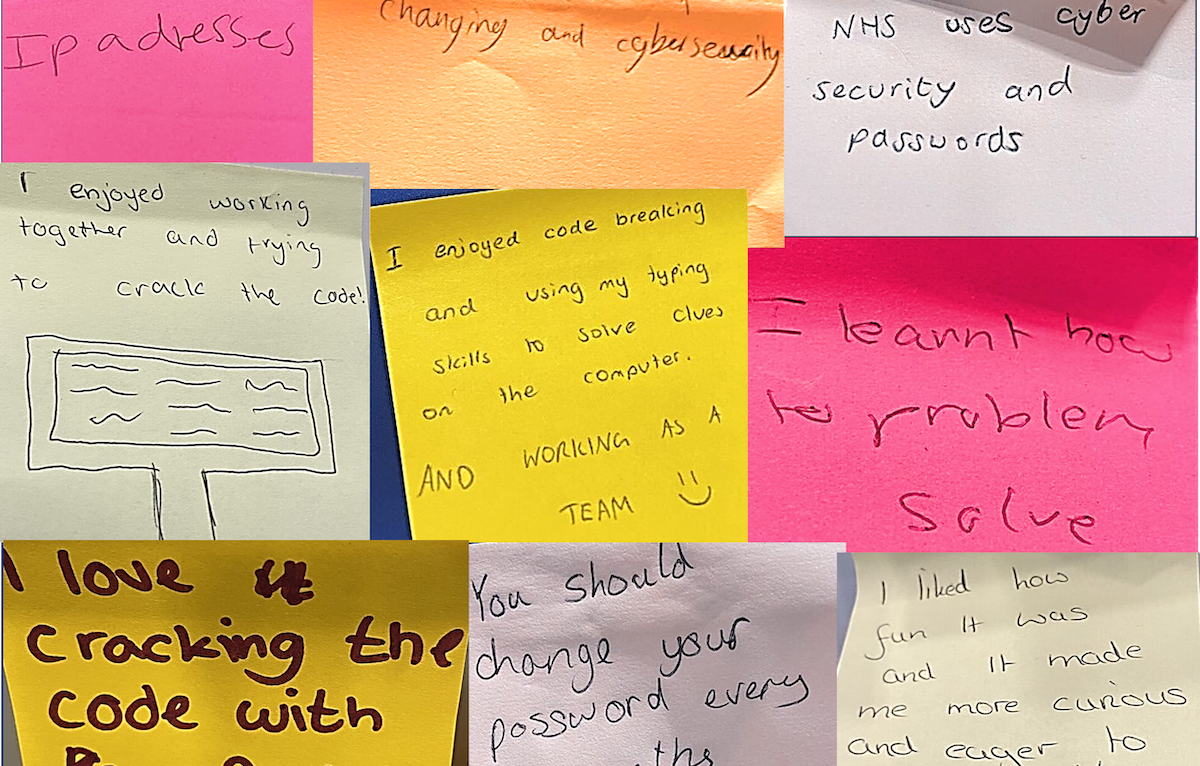 Ip adresses
changing and cybersecurity
NHS uses cyber
security and
passwords
I enjoyed working
together and trying
to crack the code!
I enjoyed code breaking
and using my typing
skills to solve clues
on the computer.
AND WORKING AS A
TEAM
I learnt how
to problem
solve
I love it
cracking the
code with
You should
change your
password every
I liked how
fun It was
and It made
me more curious
and eager to